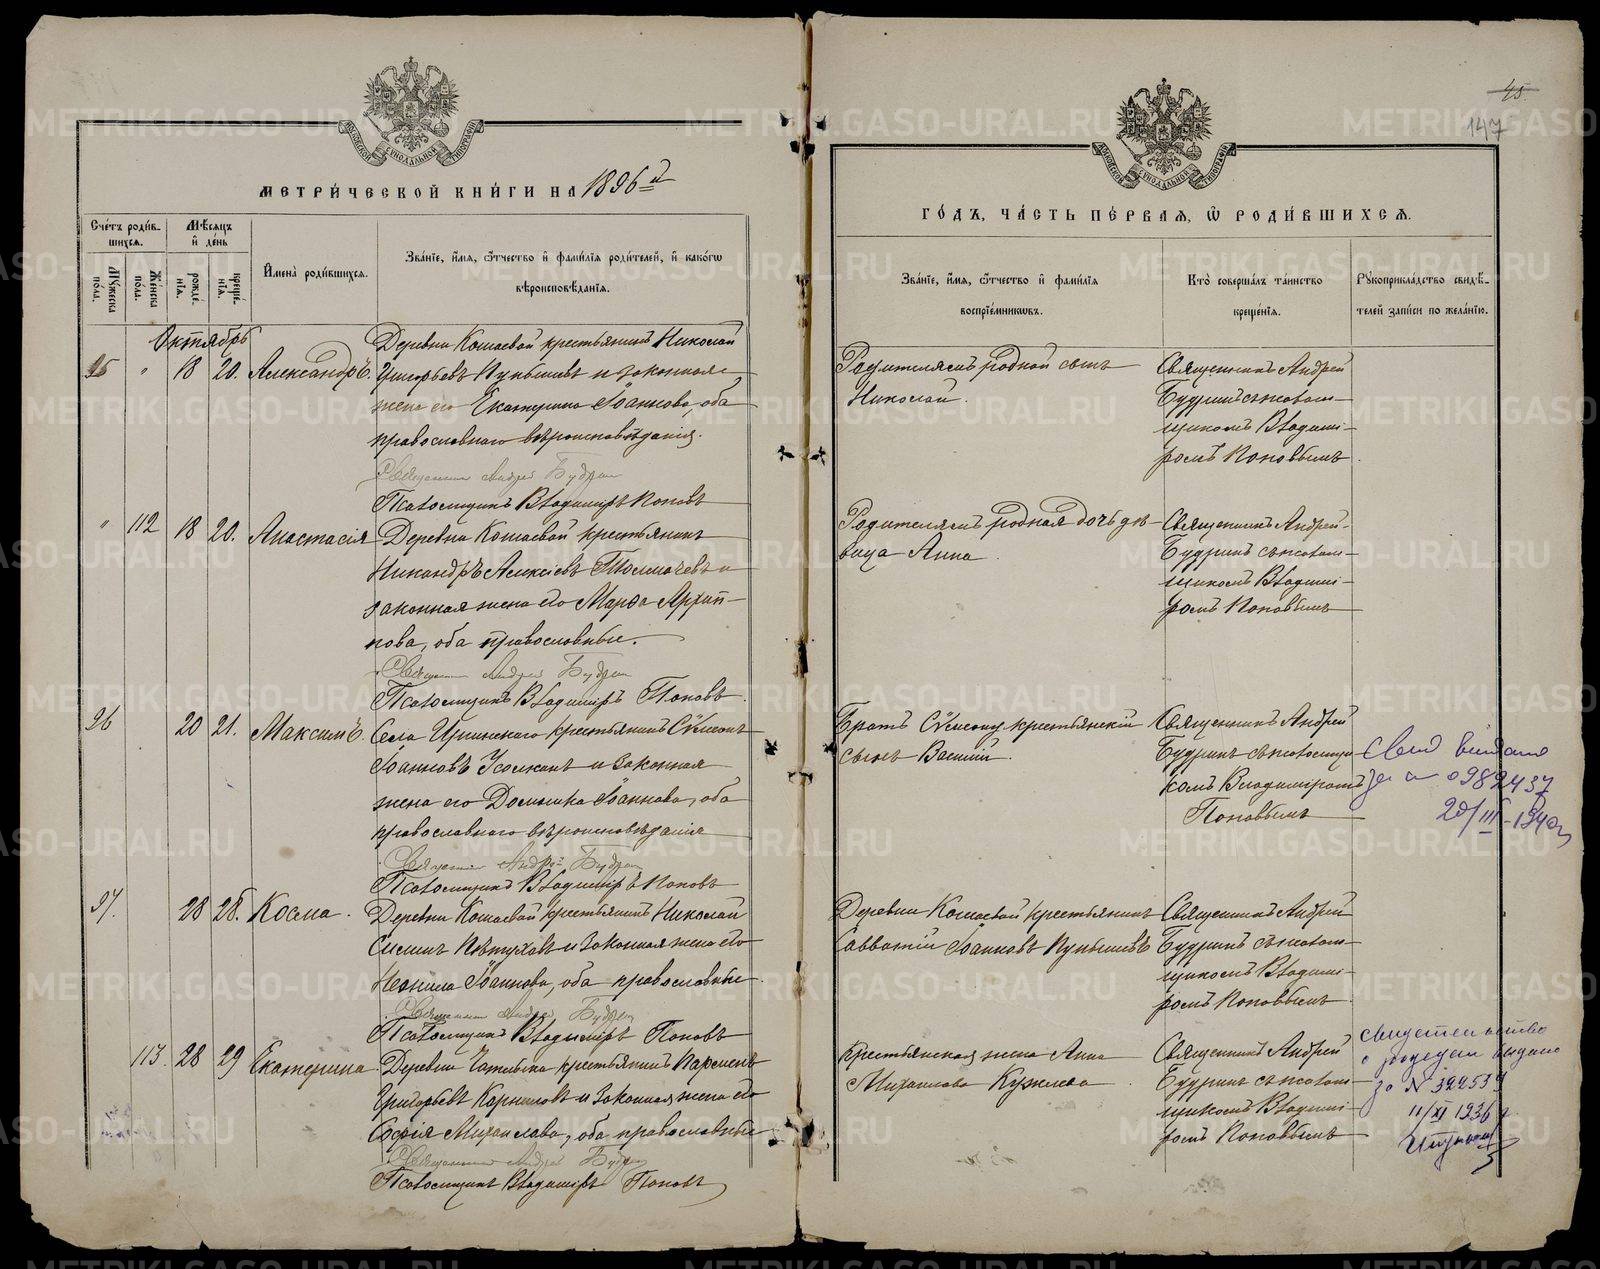 МЕТРИ́ЧЕСКОЙ КНИ́ГИ НА 1896 й
Сче́тъ роди́в-
шихся.
Мѣсяцъ
и де́нь
Мужеска
по́ла.
Же́нска
по́ла.
рожде́-
нія.
креще́-
нія.
Имена̀ роди́вшихся.
Зва́ніе, и́мя, о́тчество и фами́лія роди́телей, и како́гѡ
вѣроисповѣ́данія.
Октябрь
95 " 18 20. Александръ. Деревни Кошаевой крестьянинъ Николай
Григорьевъ Пупышевъ и законная
жена его Екатерина Іоаннова, оба
православнаго вѣроисповѣданія.
Священникъ Андрей Будрин
Псаломщикъ Владиміръ Поповъ
" 112 18 20. Анастасія Деревни Кошаевой крестьянинъ
Никандръ Алексіевъ Толмачевъ и
законная жена его Марѳа Архип-
пова, оба православные.
Священник Андрей Будрин
Псаломщикъ Владиміръ Поповъ
96 20 21. Максимъ. Села крестьянинъ Сѵмеонъ
Іоанновъ и законная
жена его Домника Іоаннова, оба
православнаго вѣроисповѣданія
Священник Андрей Будрин
Псаломщикъ Владиміръ Поповъ
97. 28 28. Косма. Деревни Кошаевой крестьянинъ Николай
Силинъ Пѣтуховъ и законная жена его
Неонила Іоаннова, оба православные.
Священник Андрей Будрин
Псаломщикъ Владиміръ Поповъ
113. 28 29 Екатерина. Деревни крестьянинъ Парменъ
Григорьевъ Корниловъ и законная жена его
Софія Михаилова, оба православные
Священник Андрей Будрин
Псаломщикъ Владиміръ Поповъ
45
147
ГО́ДЪ, ЧА́СТЬ ПЕ́РВАЯ, Ѡ РОДИ́ВШИХСЯ.
Зва́ніе, и́мя, о́тчество и фами́лія
воспріе́мниковъ.
Кто̀ соверша́лъ та́инство
креще́нія.
Рукоприкла́дство свидѣ́-
телей за́писи по жела́нію.
Родителямъ родной сынъ
Николай.
Священникъ Андрей
Будринъ съ псалом-
щикомъ Владими-
ромъ Поповымъ.
Родителямъ родная дочь дѣ-
вица Анна.
Священникъ Андрей
Будринъ съ псалом-
щикомъ Владими-
ромъ Поповымъ
Братъ Сѵмеону, крестьянскій
сынъ Василій.
Священникъ Андрей
Будринъ съ псаломщи-
комъ Владиміромъ
Поповымъ
Свид выдано
за № 0982437
20/III-1940г
Деревни Кошаевой крестьянинъ
Савватій Іоанновъ Пупышевъ
Священникъ Андрей
Будринъ съ псалом-
щикомъ Владими-
ромъ Поповымъ.
Крестьянская жена Анна
Михаилова.
Священникъ Андрей
Будринъ съ псалом-
щикомъ Владими-
ромъ Поповымъ
свидетельство
о рождении выдано
за № 322539
11/XI 1936 г.